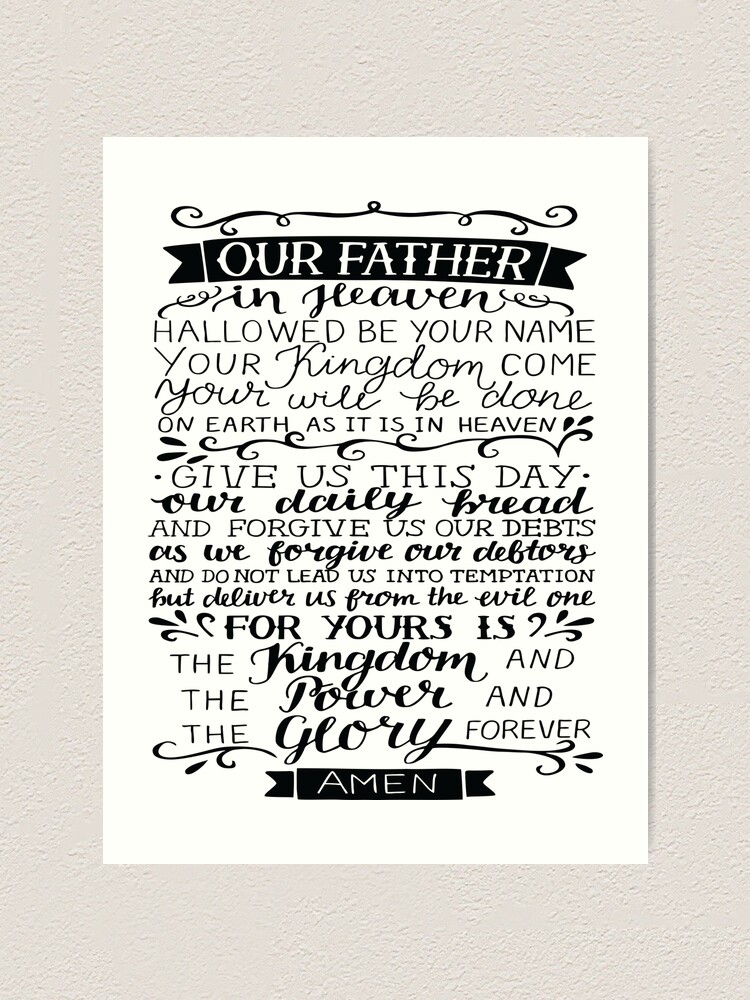 OUR FATHER
in Heaven
HALLOWED BE YOUR NAME
YOUR Kingdom COME
Your will be done
ON EARTH AS IT IS IN HEAVEN
GIVE US THIS DAY
our daily bread
AND FORGIVE US OUR DEBTS
as we forgive our debtors
AND DO NOT LEAD US INTO TEMPTATION
but deliver us from the evil one
FOR YOURS IS
THE Kingdom AND
THE Power AND
THE Glory FOREVER
AMEN